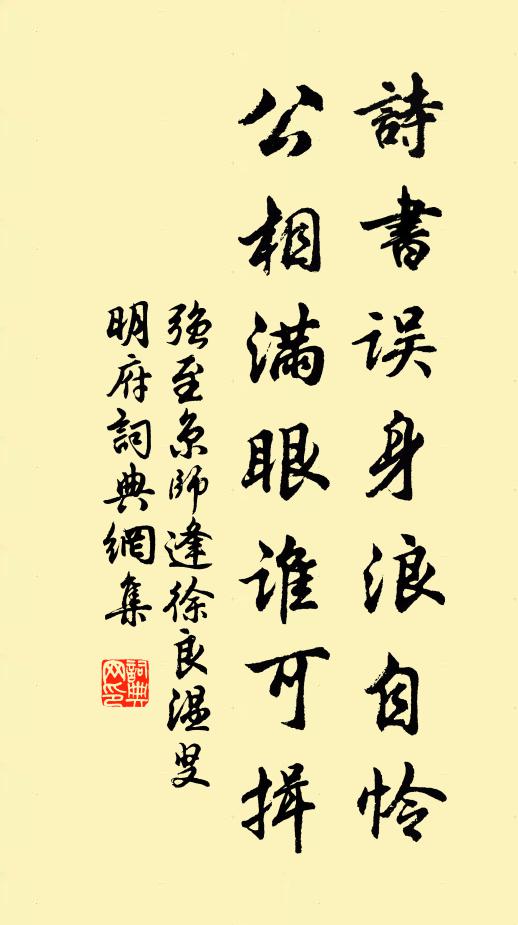 詩書误身浪自怜
公相满眼谁可揖
强至京師逢徐良温叟
明府詞典網集
詞典网印